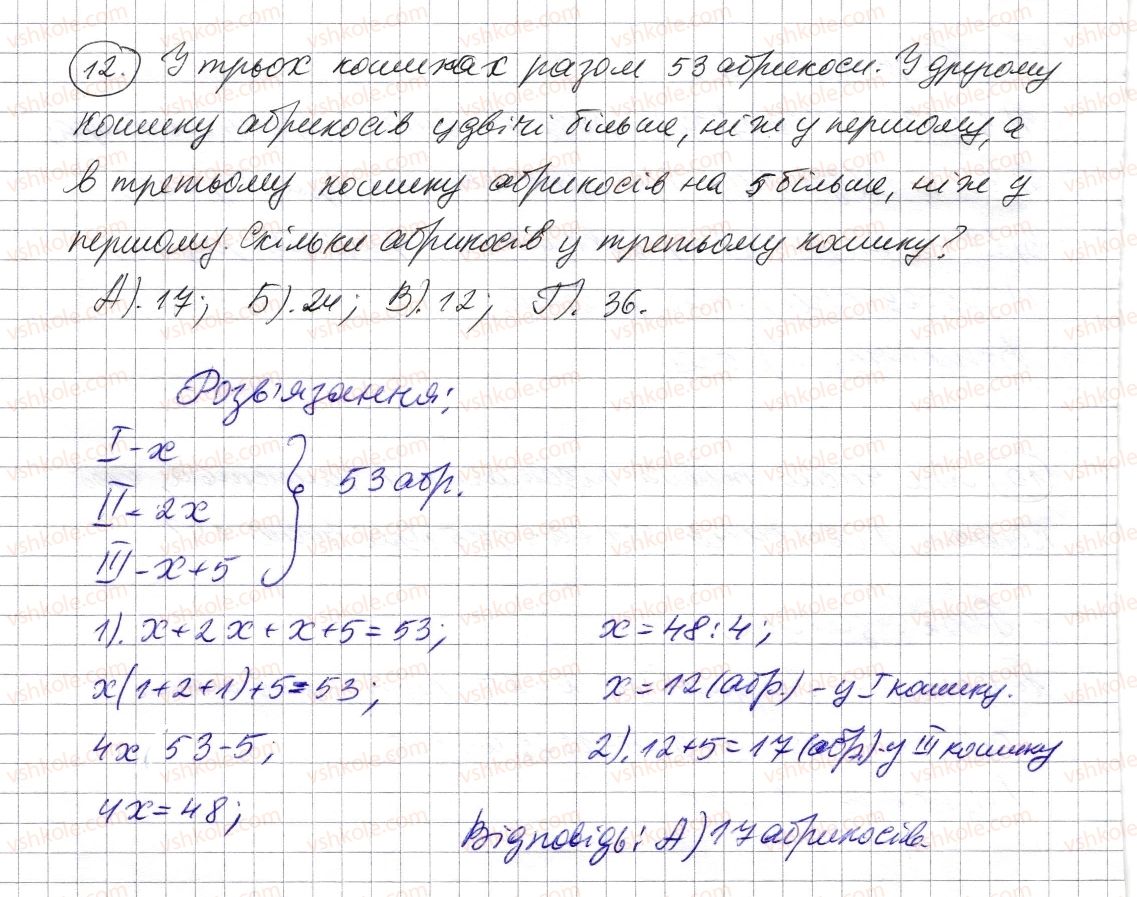 12. У трьох кошиках разом 53 абрикоси. У другому
кошику абрикосів удвічі більше, ніж у першому, а
в третьому кошику абрикосів на 5 більше, ніж у
першому. Скільки абрикосів у третьому кошику?
А). 17; Б). 24; В). 12; Г). 36.
Розв'язання;
I - x
II - 2x
III - x+5
53 абр.
1). x+2x+x+5=53;
x(1+2+1)+5=53;
4x 53-5;
4x=48;
x=48:4;
x=12(абр.) - у I кошику.
2). 12+5=17(абр.)-у III кошику
Відповідь: А) 17 абрикосів.